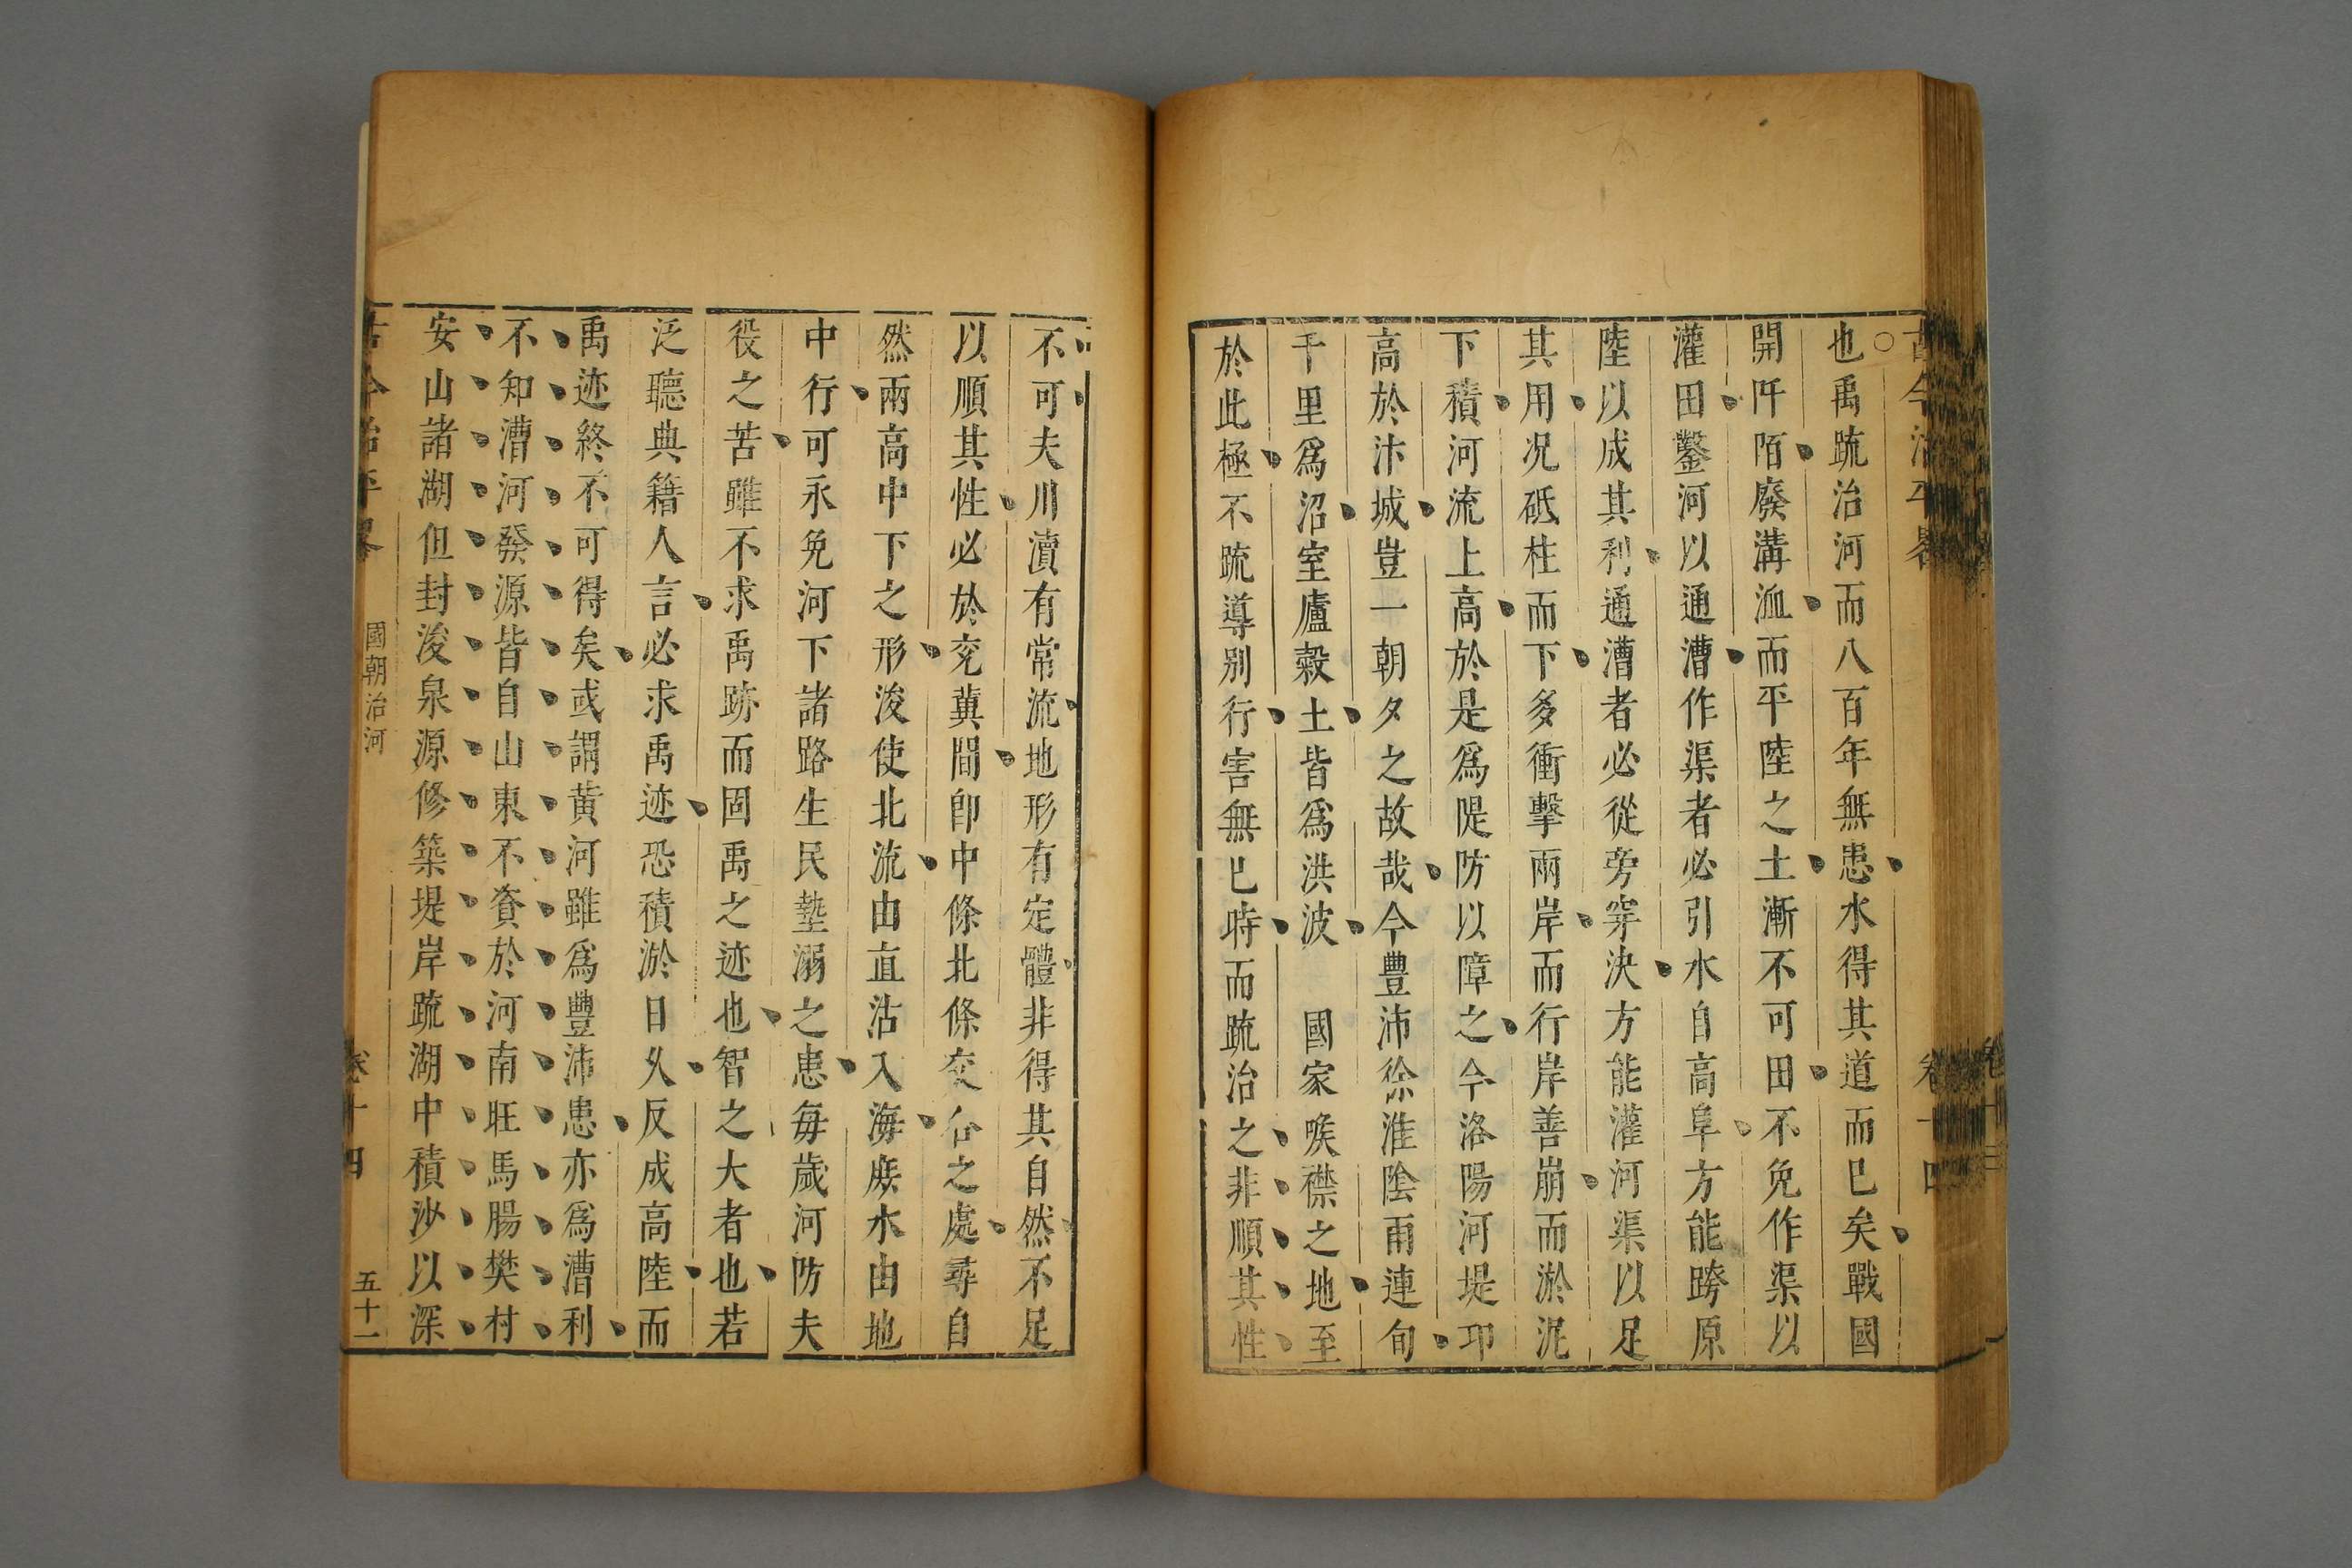 也禹疏治河而八百年無患水得其道而已矣戰國
開阡陌廢溝洫而平陸之土漸不可田不免作渠以
灌田鑿河以通漕作渠者必引水自高阜方能跨原
陸以成其利通漕者必從旁穿決方能灌河渠以足
其用况砥柱而下多衝擊兩岸而行岸善崩而淤泥
下積河流上高於是爲隄防以障之今洛陽河堤卭
高於汴城豈一朝夕之故哉今豊沛徐淮陰雨連旬
千里爲沼室廬榖土皆爲洪波 國家喉襟之地至
於此極不疏導别行害無已時而疏治之非順其性
不可夫川瀆有常流地形有定體非得其自然不足
以順其性必於兖冀間卽中條北條交合之處尋自
然兩高中下之形浚使北流由直沽入海庶水由地
中行可永免河下諸路生民墊溺之患每歲河防夫
役之苦雖不求禹跡而固禹之迹也智之大者也若
泛聽典籍人言必求禹迹恐積淤日乆反成高陸而
禹迹終不可得矣或謂黄河雖爲豊沛患亦爲漕利
不知漕河發源皆自山東不資於河南旺馬腸樊村
安山諸湖但封浚泉源修築堤岸疏湖中積沙以深
古今治平畧 國朝治河 卷十四 五十一